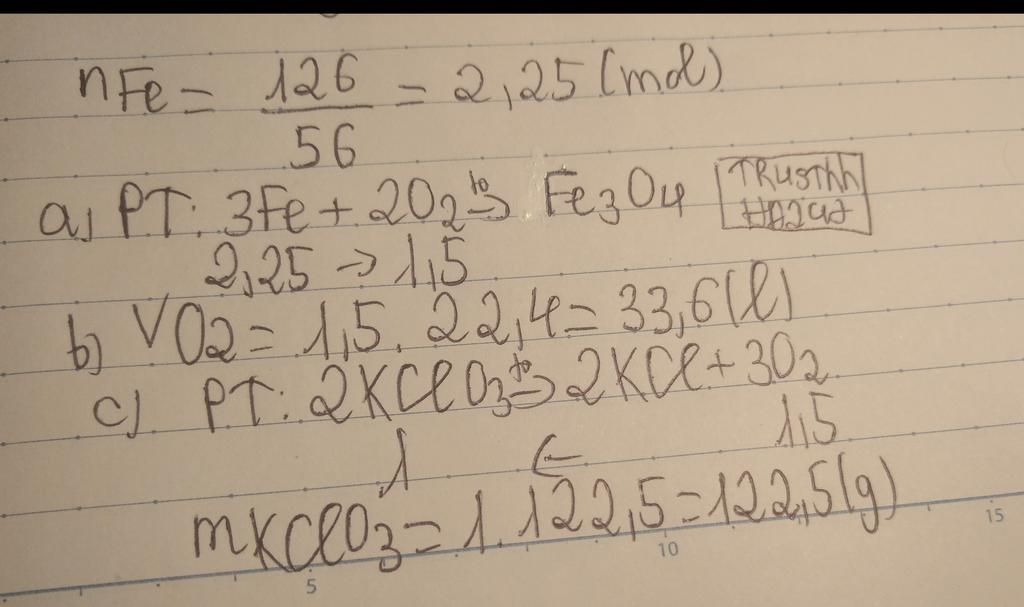 nFe = 126/56 = 2,25 (mol)
a) PT: 3Fe + 2O2 t0→ Fe3O4
TRUSThh
HA247
2,25 → 1,5
b) VO2 = 1,5. 22,4 = 33,6(l)
c) PT: 2KClO3 t0→ 2KCl + 3O2
1 ← 1,5
mKClO3 = 1. 122,5 = 122,5(g)
5 10 15